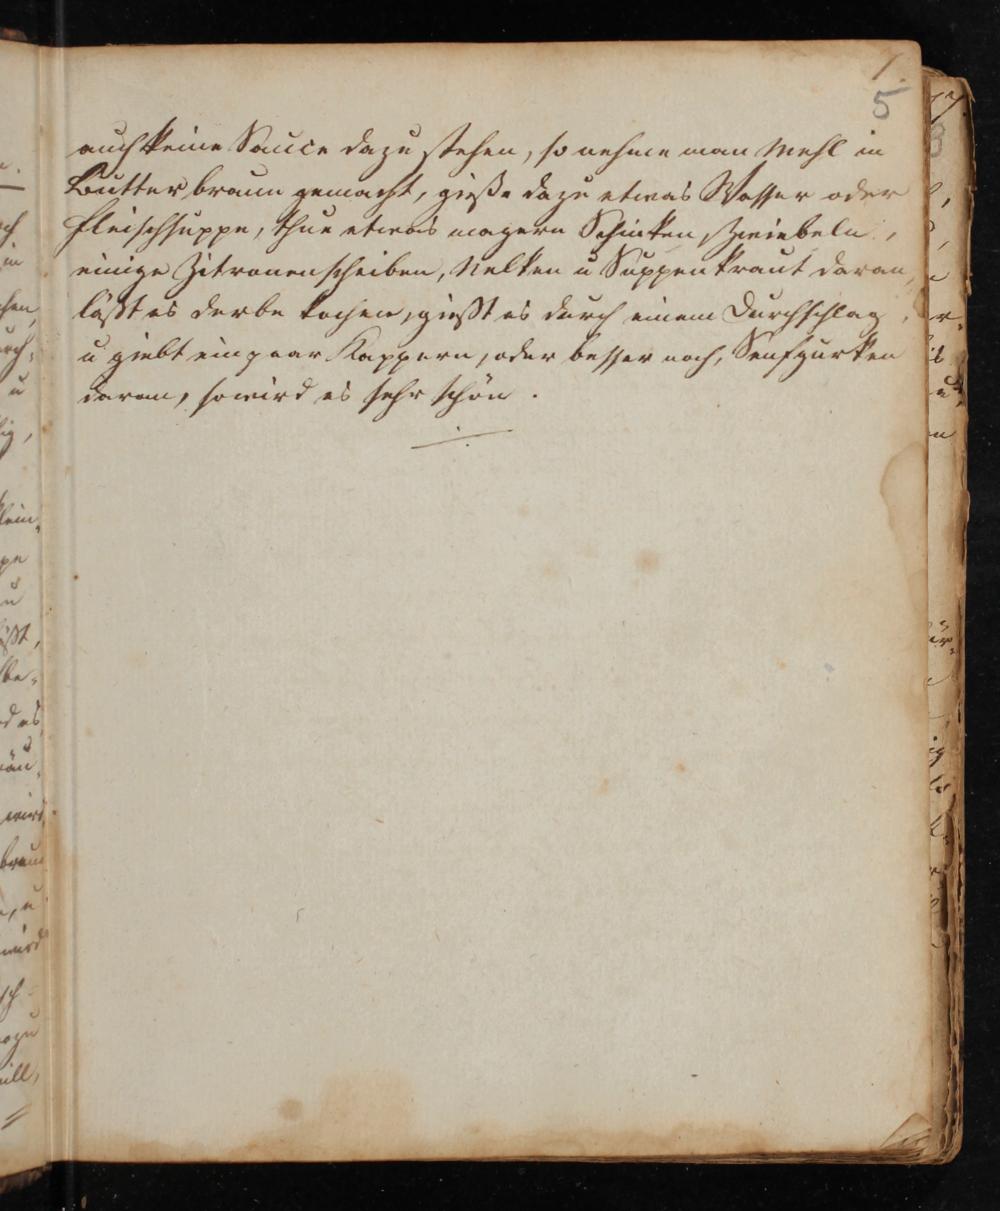 1.
5
auch keine Sauce dazu stehen, so nehme man Mehl in
Butter braun gemacht, gieße dazu etwas Wasser oder
Fleischsuppe, thue etwas magern Schinken, Zwiebeln,
einige Zitronenscheiben, Nelken u Suppenkraut daran,
läßt es derbe kochen, gießt es durch einem Durchschlag,
u giebt ein paar Kappern, oder besser noch, Senfgurken
daran, so wird es sehr schön.